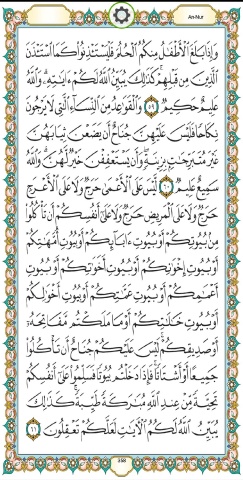 An-Nur
وَإِذَا بَلَغَ ٱلْأَطْفَٰلُ مِنكُمُ ٱلْحُلُمَ فَلْيَسْتَـْٔذِنُوا۟ كَمَا ٱسْتَـْٔذَنَ
ٱلَّذِينَ مِن قَبْلِهِمْ كَذَٰلِكَ يُبَيِّنُ ٱللَّهُ لَكُمْ ءَايَٰتِهِۦ وَٱللَّهُ
عَلِيمٌ حَكِيمٌ ٥٩ وَٱلْقَوَٰعِدُ مِنَ ٱلنِّسَآءِ ٱلَّٰتِى لَا يَرْجُونَ
نِكَاحًا فَلَيْسَ عَلَيْهِنَّ جُنَاحٌ أَن يَضَعْنَ ثِيَابَهُنَّ
غَيْرَ مُتَبَرِّجَٰتٍۭ بِزِينَةٍ وَأَن يَسْتَعْفِفْنَ خَيْرٌ لَّهُنَّ وَٱللَّهُ
سَمِيعٌ عَلِيمٌ ٦٠ لَّيْسَ عَلَى ٱلْأَعْمَىٰ حَرَجٌ وَلَا عَلَى ٱلْأَعْرَجِ
حَرَجٌ وَلَا عَلَى ٱلْمَرِيضِ حَرَجٌ وَلَا عَلَىٰٓ أَنفُسِكُمْ أَن تَأْكُلُوا۟
مِنۢ بُيُوتِكُمْ أَوْ بُيُوتِ ءَابَآئِكُمْ أَوْ بُيُوتِ أُمَّهَٰتِكُمْ
أَوْ بُيُوتِ إِخْوَٰنِكُمْ أَوْ بُيُوتِ أَخَوَٰتِكُمْ أَوْ بُيُوتِ
أَعْمَٰمِكُمْ أَوْ بُيُوتِ عَمَّٰتِكُمْ أَوْ بُيُوتِ أَخْوَٰلِكُمْ
أَوْ بُيُوتِ خَٰلَٰتِكُمْ أَوْ مَا مَلَكْتُم مَّفَاتِحَهُۥٓ
أَوْ صَدِيقِكُمْ لَيْسَ عَلَيْكُمْ جُنَاحٌ أَن تَأْكُلُوا۟
جَمِيعًا أَوْ أَشْتَاتًا فَإِذَا دَخَلْتُم بُيُوتًا فَسَلِّمُوا۟ عَلَىٰٓ أَنفُسِكُمْ
تَحِيَّةً مِّنْ عِندِ ٱللَّهِ مُبَٰرَكَةً طَيِّبَةً كَذَٰلِكَ
يُبَيِّنُ ٱللَّهُ لَكُمُ ٱلْءَايَٰتِ لَعَلَّكُمْ تَعْقِلُونَ ٦١
358